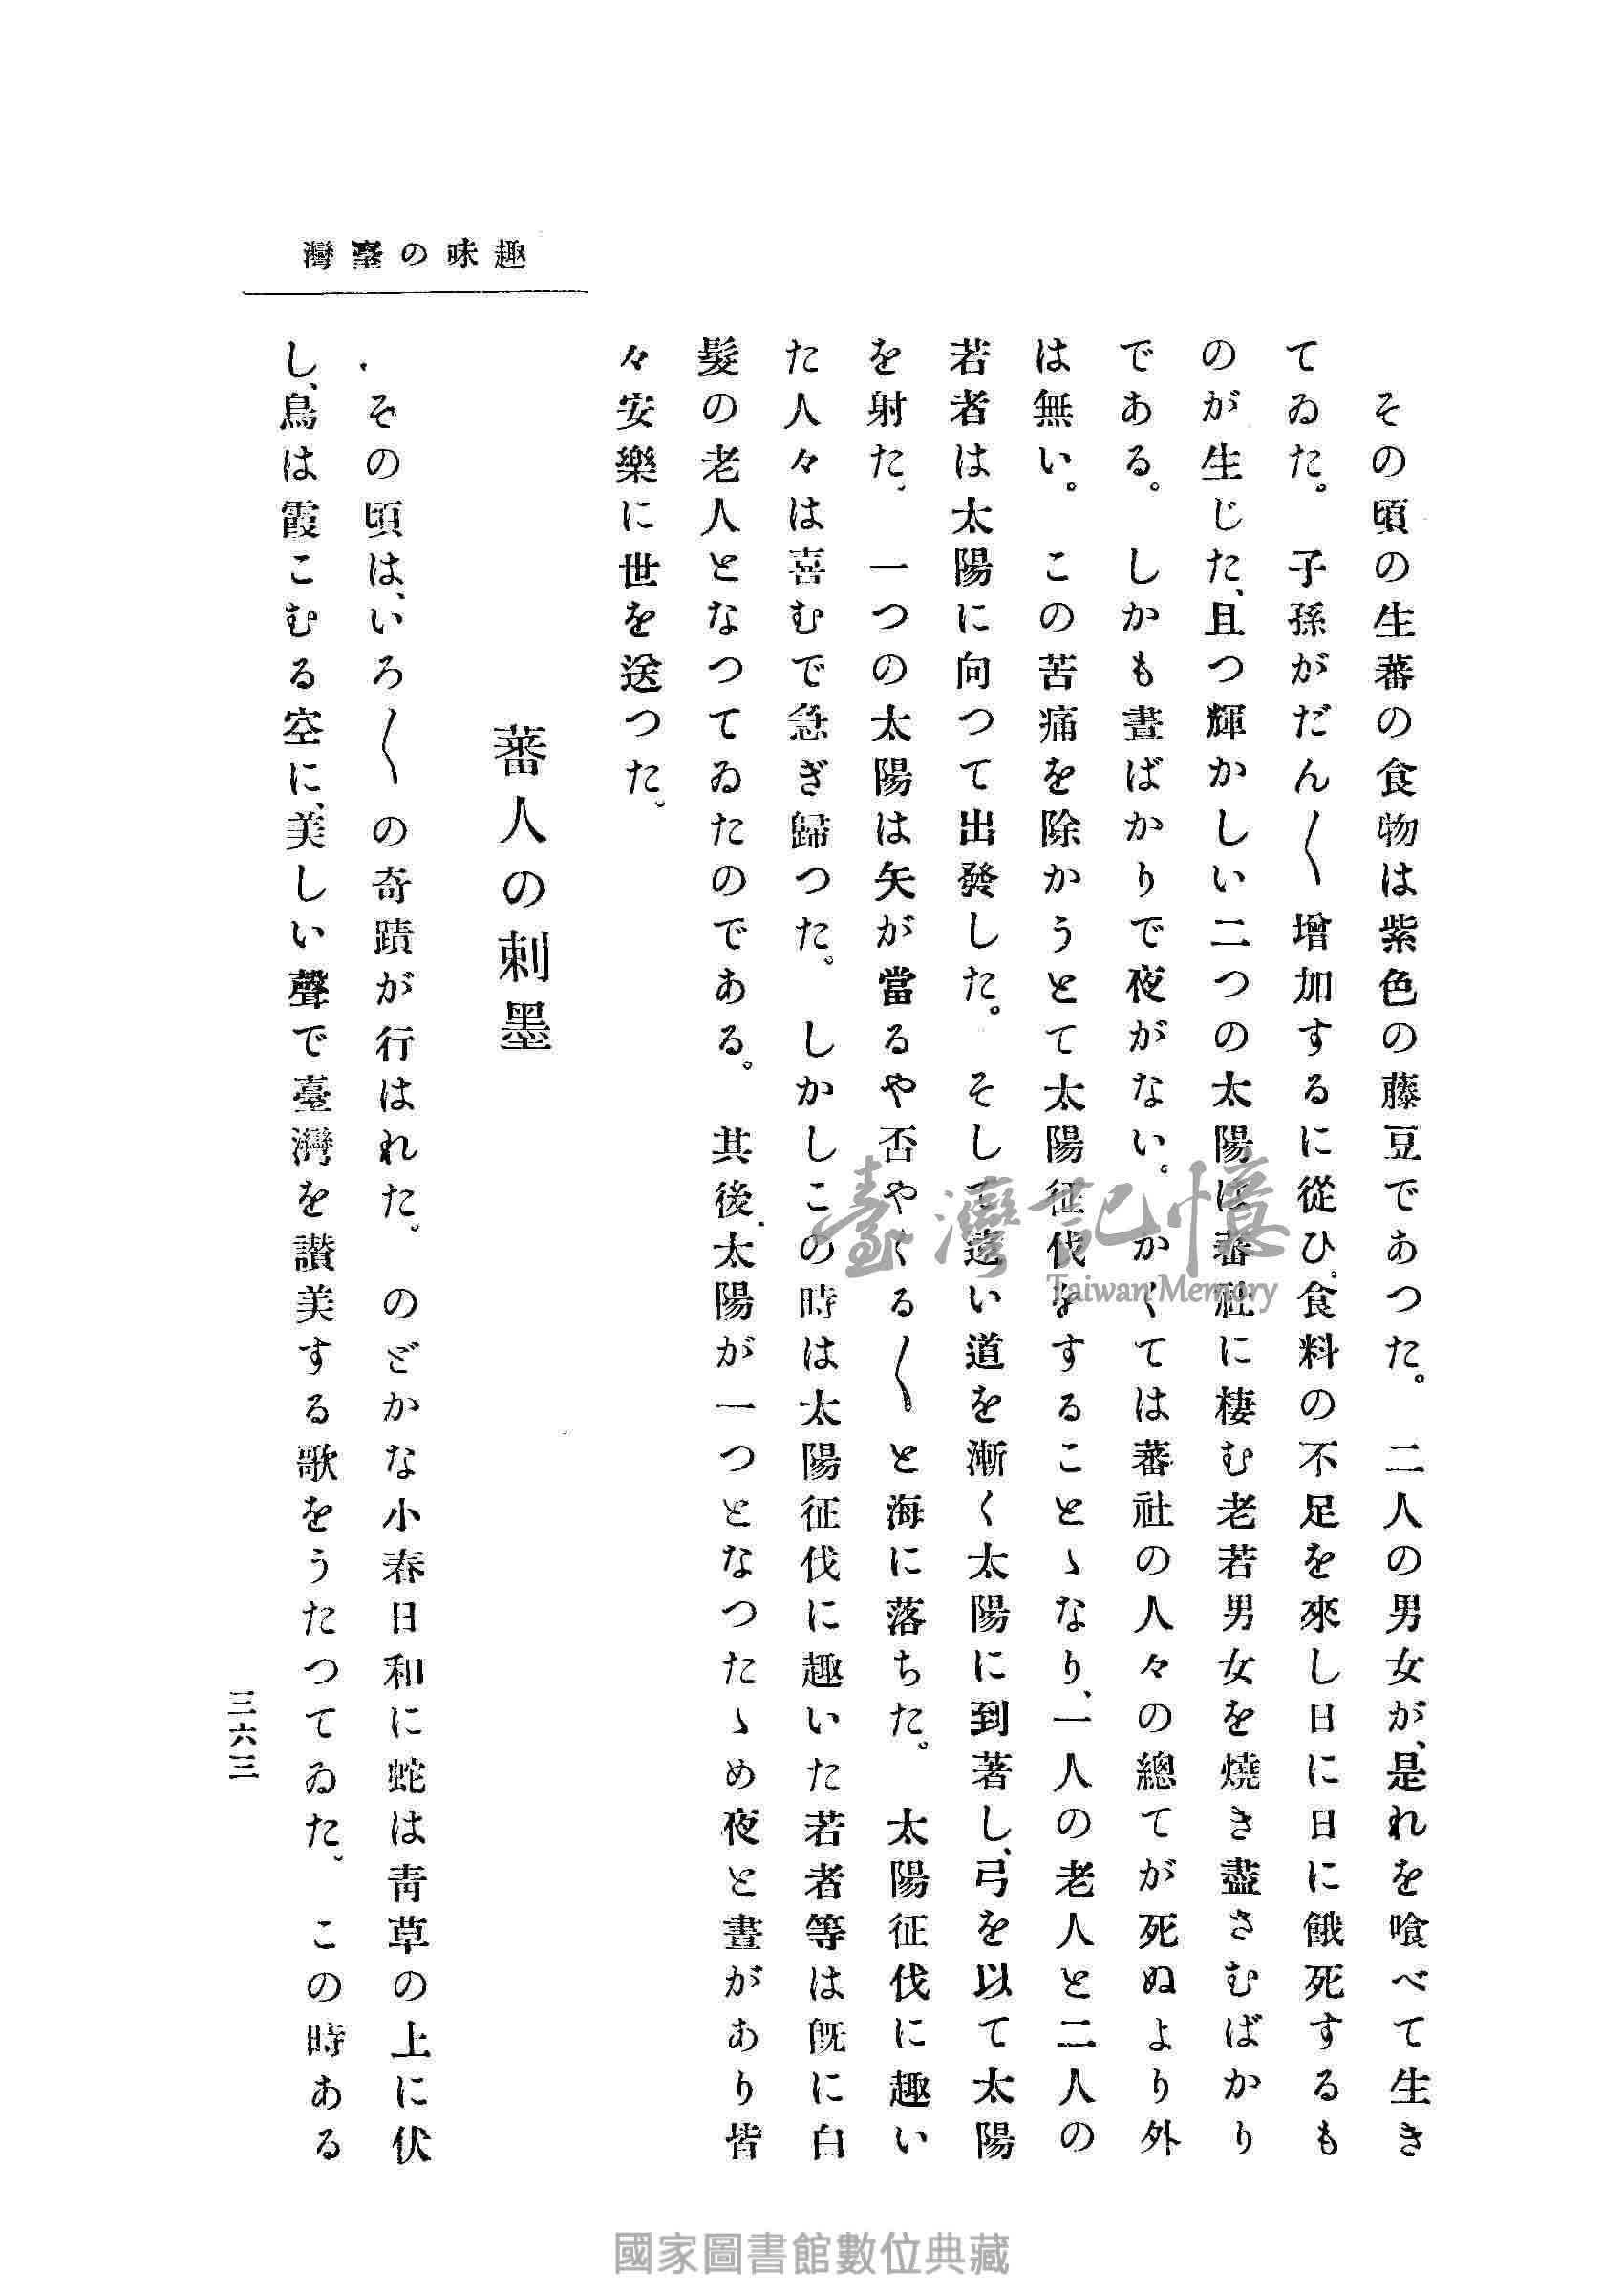 灣臺の味趣
その頃の生蕃の食物は紫色の藤豆であつた。 二人の男女が、是れを喰べて生き
てゐた。 子孫がだん〱增加するに從ひ、食料の不足を來し日に日に餓死するも
のが生じた、且つ輝かしい二つの太陽は蕃社に棲む老若男女を燒き盡さむばかり
である。 しかも晝ばかりで夜がない。 かくては蕃社の人々の總てが死ぬより外
は無い。 この苦痛を除かうとて太陽征伐をすることゝなり、一人の老人と二人の
若者は太陽に向つて出發した。 そして遠い道を漸く太陽に到著し、弓を以て太陽
を射た、 一つの太陽は矢が當るや否やくる〱と海に落ちた。 太陽征伐に趣い
た人々は喜むで急ぎ歸つた。 しかしこの時は太陽征伐に趣いた若者等は旣に白
髮の老人となつてゐたのである。 其後太陽が一つとなつたゝめ夜と晝があり皆
々安樂に世を送つた。
蕃人の刺墨
その頃は、いろ〱の奇蹟が行はれた。 のどかな小春日和に蛇は靑草の上に伏
し、鳥は霞こむる空に、美しい聲で臺灣を讚美する歌をうたつてゐた。 この時ある
三六三
臺灣記憶
Taiwan Memory
國家圖書館數位典藏